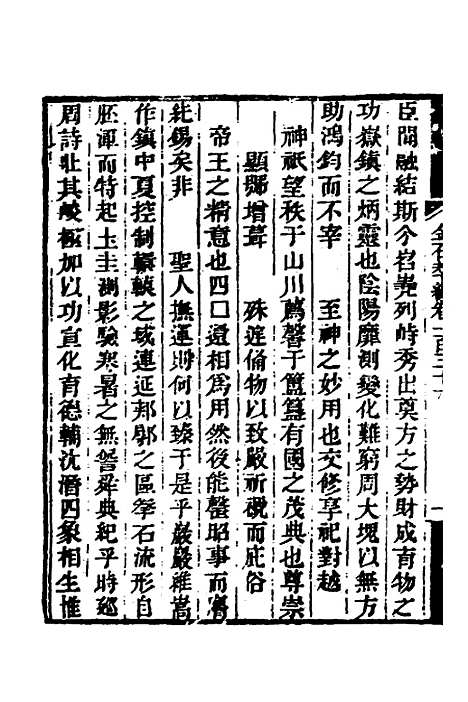 臣聞融結斯分岧嶤列峙秀出奠方之勢財成育物之
功嶽鎮之炳靈也陰陽靡測變化難窮周大塊以無方
助鴻鈞而不宰　　至神之妙用也交修享祀對越
神祇望秩于山川薦馨于簠簋有國之茂典也尊崇
顯號增葺　　殊庭偹物以致嚴祈禠而庇俗
帝王之精意也四口遞相爲用然後能罄昭事而膺
純錫矣非　　聖人撫運則何以臻于是乎巖巖維嵩
作鎮中夏控制轘轅之域連延邦郛之區孥石流形自
胚渾而特起土圭測影驗寒暑之無諐舜典紀乎時廵
周詩壯其峻極加以功宣化育德輔沈潛四象相生惟
金石萃編卷一百三十
一